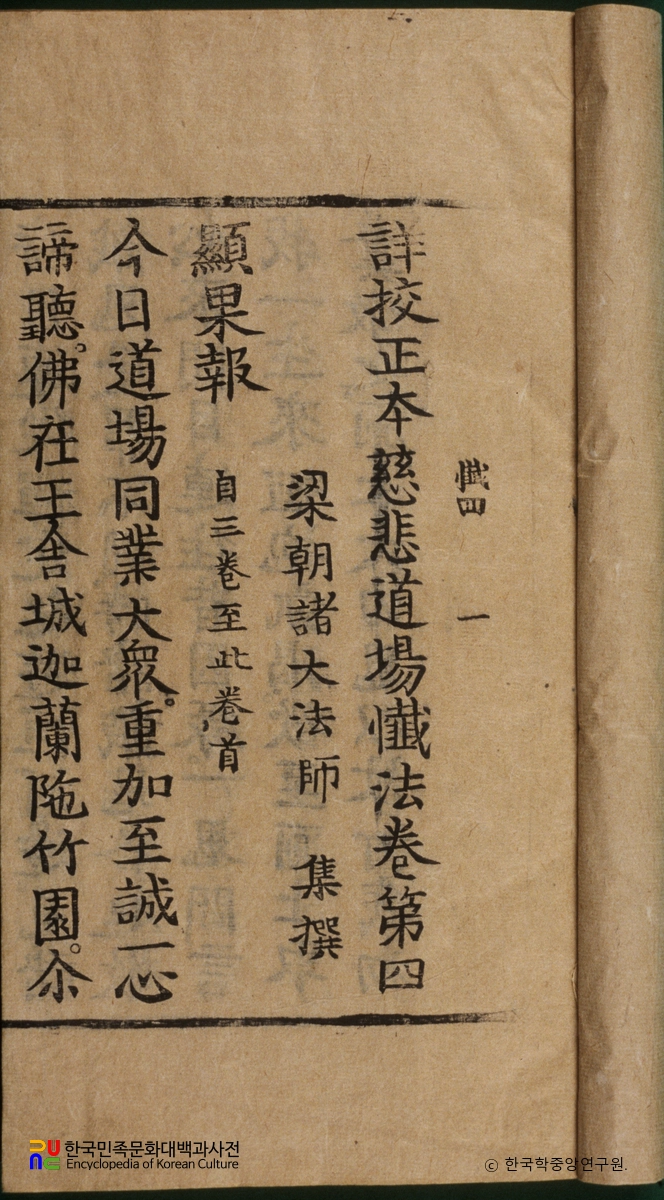 懺四　一
詳挍正本慈悲道場懺法卷第四
梁朝諸大法師　集撰
顯果報　自三卷至此卷首
今日道場同業大衆。重加至誠一心
諦聽。佛在王舍城迦蘭陁竹園。尒
한국민족문화대백과사전
Encyclopedia of Korean Culture
© 한국학중앙연구원.